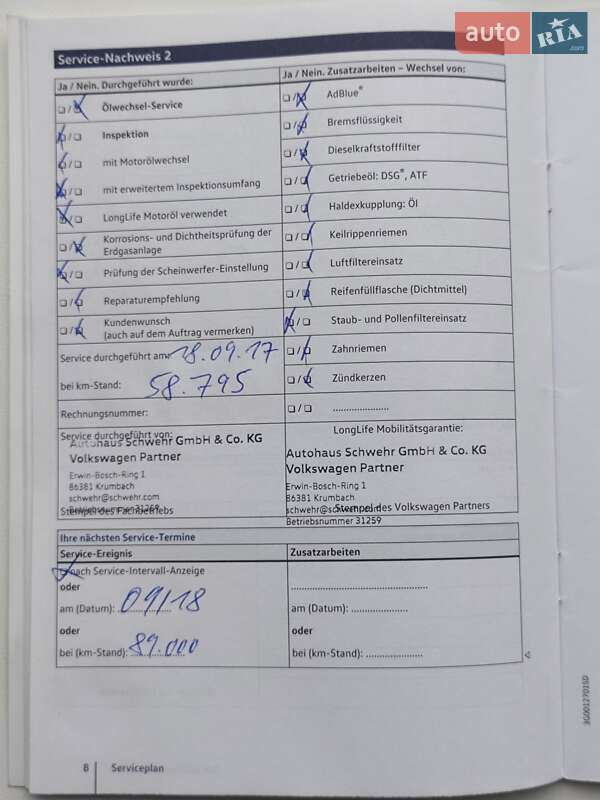 auto RIA .com
Service-Nachweis 2
Ja / Nein. Durchgeführt wurde:
Ölwechsel-Service
Inspektion
mit Motorölwechsel
mit erweitertem Inspektionsumfang
LongLife Motoröl verwendet
Korrosions- und Dichtheitsprüfung der
Erdgasanlage
Prüfung der Scheinwerfer-Einstellung
Reparaturempfehlung
Kundenwunsch
(auch auf dem Auftrag vermerken)
Service durchgeführt am: 18.09.17
bei km-Stand: 58.795
Rechnungsnummer:
Service durchgeführt von:
Autohaus Schwehr GmbH & Co. KG
Volkswagen Partner
Erwin-Bosch-Ring 1
86381 Krumbach
schwehr@schwehr.com
Betriebsnummer 31259
Stempel des Fachbetriebs
Ja / Nein. Zusatzarbeiten – Wechsel von:
AdBlue®
Bremsflüssigkeit
Dieselkraftstofffilter
Getriebeöl: DSG®, ATF
Haldexkupplung: Öl
Keilrippenriemen
Luftfiltereinsatz
Reifenfüllflasche (Dichtmittel)
Staub- und Pollenfiltereinsatz
Zahnriemen
Zündkerzen
.....................
LongLife Mobilitätsgarantie:
Autohaus Schwehr GmbH & Co. KG
Volkswagen Partner
Erwin-Bosch-Ring 1
86381 Krumbach
schwehr@schwehr.com
Stempel des Volkswagen Partners
Betriebsnummer 31259
Ihre nächsten Service-Termine
Service-Ereignis
nach Service-Intervall-Anzeige
oder
am (Datum): 09/18
oder
bei (km-Stand): 89.000
Zusatzarbeiten
..................................................
am (Datum): .....................
oder
bei (km-Stand): .....................
3G0012701SD
8 Serviceplan